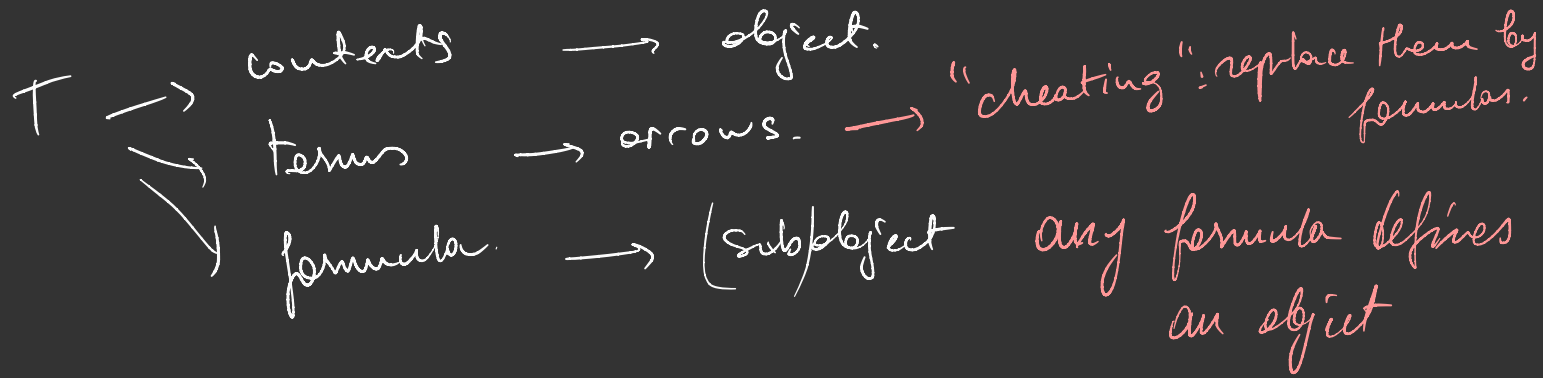 T → contexts → object.
→ terms → arrows. → "cheating": replace them by
formulas.
→ formula. → (sub)object any formula defines
an object